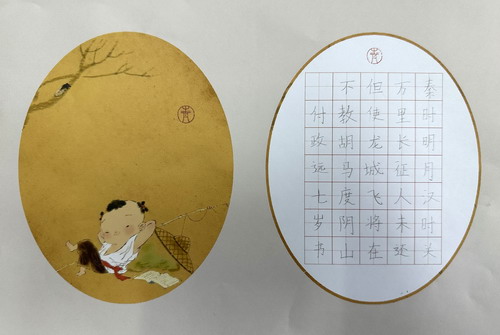 秦时明月汉时关
万里长征人未还
但使龙城飞将在
不教胡马度阴山
付政远七岁书